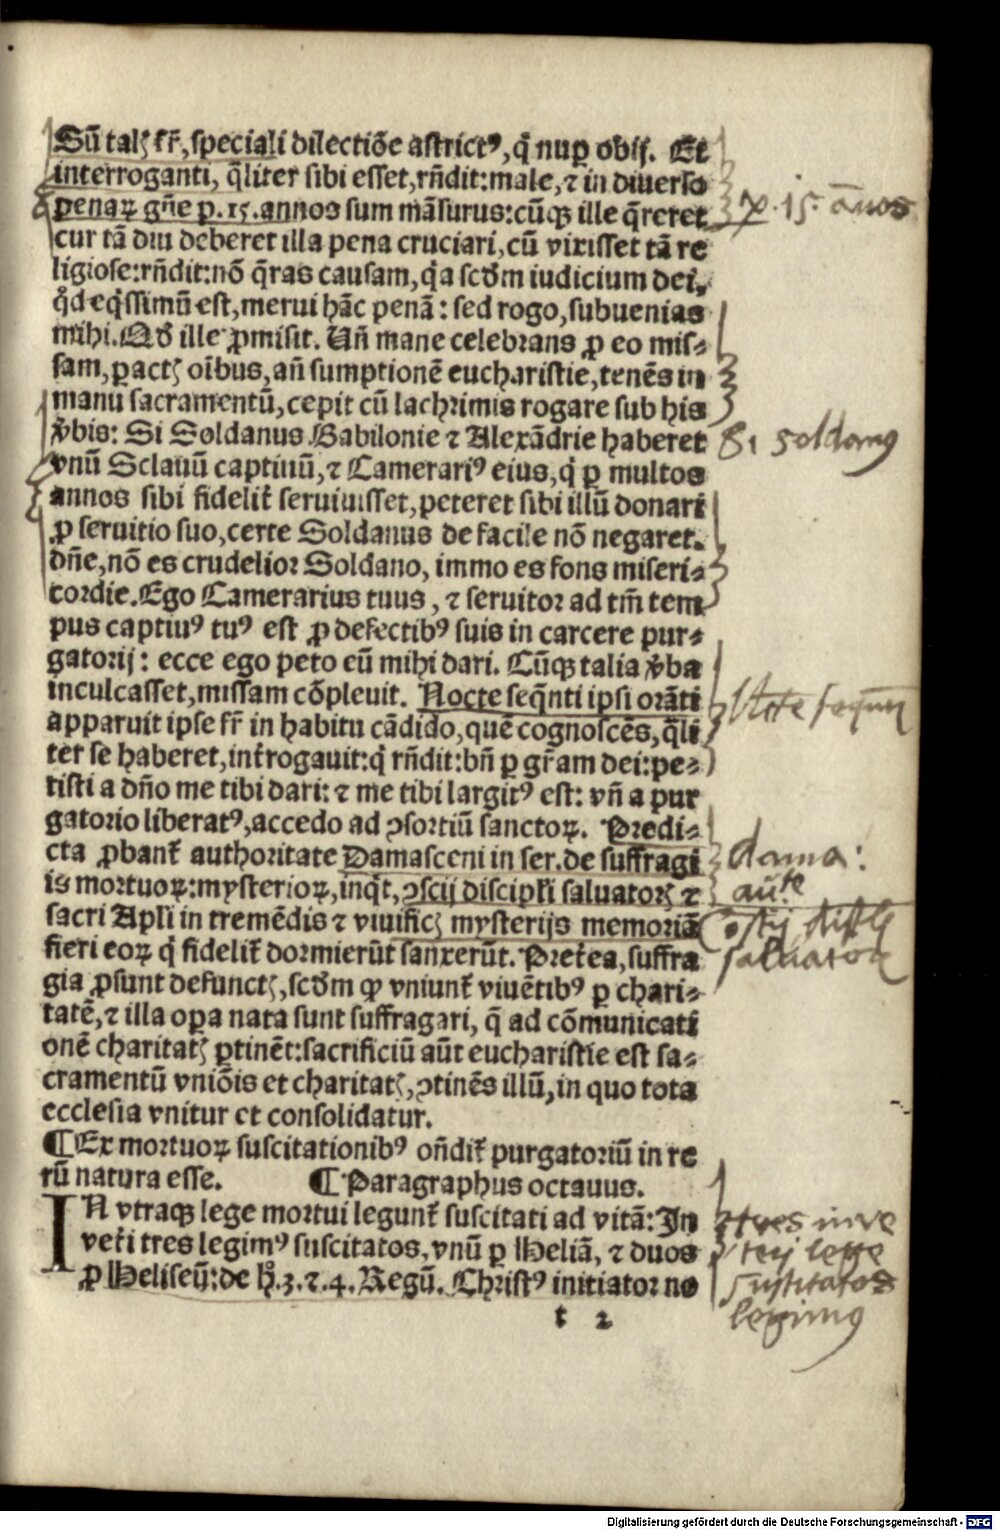 Sū talꝭ fr̄, speciali dilectiōe astrictꝰ, q̄ nuꝑ obiĳ. Et
interroganti, q̄liter sibi esset, rn̄dit: male, ⁊ in diuerso
penaꝝ gn̄e p. 15. annos sum mā̄surus: cūqꝫ ille q̄reret
cur tā diu deberet illa pena cruciari, cū vixisset tā re
ligiose: rn̄dit: nō q̄ras causam, q̄a scd̄m iudicium dei,
q̊d eq̄ssimū est, merui hāc penā: sed rogo, subuenias
mihi. Qd̄ ille ꝓmisit. Vn̄ mane celebrans ꝓ eo mis⸗
sam, ꝑactꝭ oībus, an̄ sumptionē eucharistie, tenēs in
manu sacramentū, cepit cū lachrimis rogare sub his
v̄bis: Si Soldanus Babilonie ⁊ Alexādrie haberet
vnū Sclauū captiuū, ⁊ Camerariꝰ eius, q̄ ꝑ multos
annos sibi fidelit̄ seruiuisset, peteret sibi illū donari
ꝓ seruitio suo, certe Soldanus de facile nō negaret.
dn̄e, nō es crudelior Soldano, immo es fons miseri⸗
cordie. Ego Camerarius tuus, ⁊ seruitor ad tm̄ tem
pus captiuꝰ tuꝰ est ꝓ defectibꝰ suis in carcere pur⸗
gatorĳ: ecce ego peto eū mihi dari. Cūqꝫ talia v̄ba
inculcasset, missam cōpleuit. Nocte seq̄nti ipsi orāti
apparuit ipse fr̄ in habitu cādido, quē cognoscēs, q̄li
ter se haberet, int̄rogauit: q̄ rn̄dit: bn̄ ꝑ gr̄am dei: pe⸗
tisti a dn̄o me tibi dari: ⁊ me tibi largitꝰ est: vn̄ a pur
gatorio liberatꝰ, accedo ad ꝯsortiū sanctoꝝ. Predi⸗
cta ꝓbant̄ authoritate Damasceni in ser. de suffragi
is mortuoꝝ: mysterioꝝ, inq̄t, ꝯscĳ discipl̄i saluatorꝭ ⁊
sacri Apl̄i in tremēdis ⁊ viuificꝭ mysterĳs memoriā
fieri eoꝝ q̄ fidelit̄ dormierūt sanxerūt. Pret̄ea, suffra
gia ꝓsunt defunctꝭ, scd̄m ꝙ vniunt̄ viuētibꝰ ꝑ chari⸗
tatē, ⁊ illa oꝑa nata sunt suffragari, q̄ ad cōmunicati
onē charitatꝭ ꝑtinēt: sacrificiū aūt eucharistie est sa⸗
cramentū vniōis et charitatꝭ, ꝯtinēs illū, in quo tota
ecclesia vnitur et consolidatur.
¶ Ex mortuoꝝ suscitationibꝰ on̄dit̄ purgatoriū in re
rū natura esse. ¶ Paragraphus octauus.
IN vtraqꝫ lege mortui legunt̄ suscitati ad vitā: In
vet̄i tres legimꝰ suscitatos, vnū ꝑ Heliā, ⁊ duos
ꝓ Heliseū: de h̊. 3. ⁊. 4. Regū. Christꝰ initiator no
t 2
p. 15. ānos
Si soldanꝰ
Nocte sequen
dama:
aute
ꝯscij discipl̄i
saluatorꝭ
tres in ve
teri lege
suscitatos
legimus
Digitalisierung gefördert durch die Deutsche Forschungsgemeinschaft - DFG